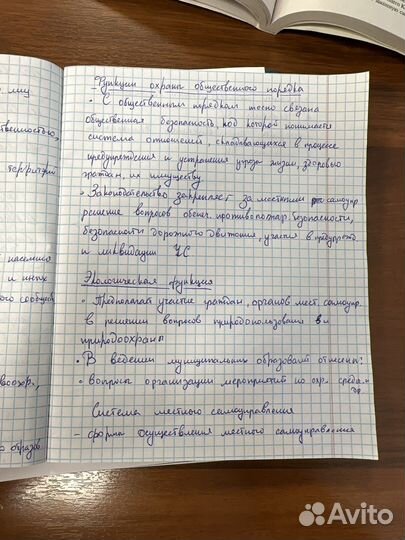 лиц
ственностью,
территори
населенно
и иных
ого сообщес
авоохр.,
о образов
Функции охраны общественного порядка
• С общественным порядком тесно связана
общественная безопасность, под которой понимается
система отношений, складывающихся в процессе
предупреждения и устранения угрозы жизни, здоровью
граждан, их имуществу
• Законодательство закрепляет за местным самоупр.
решение вопросов обеспеч. противопожар. безопасности,
безопасности дорожного движения, участия в предупрежд.
и ликвидации ЧС
Экологическая функция
• Предполагает участие граждан, органов мест. самоупр.
в решении вопросов природопользования и
природоохраны
• В ведении муниципальных образований отнесены:
• вопросы организации мероприятий по охр. окр. среды
Система местного самоуправления
– форма осуществления местного самоуправления
Avito